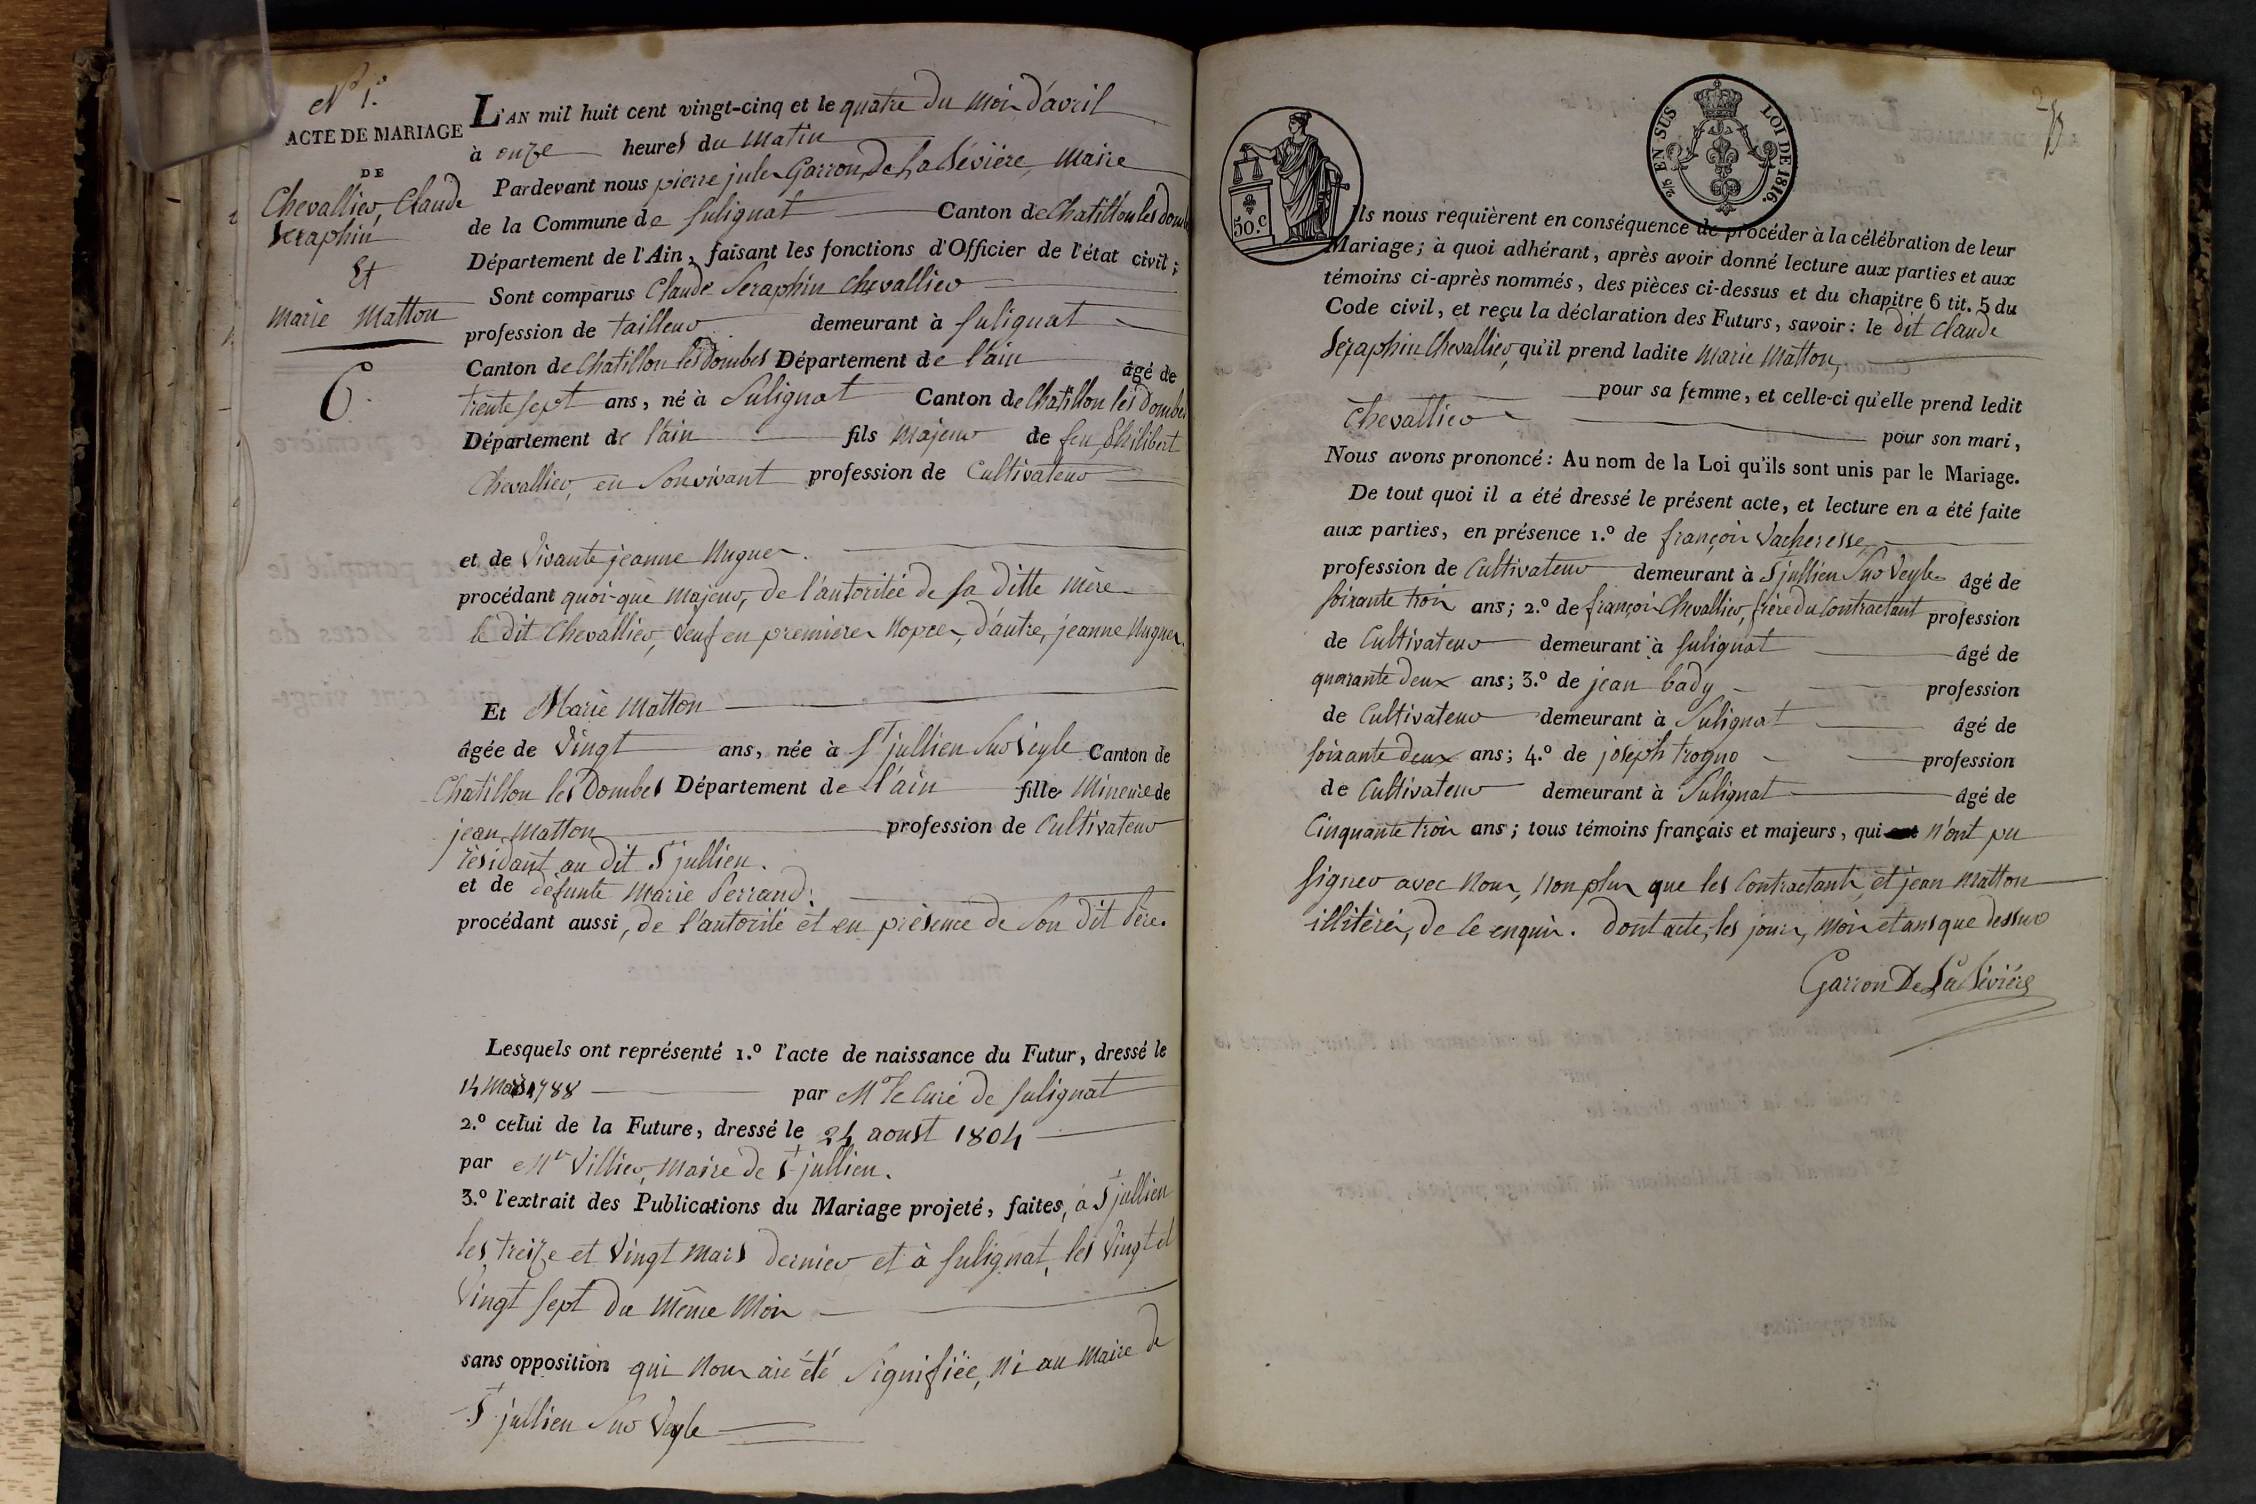 N.º 1.º
ACTE DE MARIAGE
DE
Chevallier, Claude
Seraphin
Et
marie Matton
6.
L'AN mil huit cent vingt-cinq et le quatre du Mois d'avril
à onze heures du Matin
Pardevant nous pierre jules Garron De La Sévière, Maire
de la Commune de Sulignat Canton de Chatillon les domb
Département de l'Ain, faisant les fonctions d'Officier de l'état civil;
Sont comparus Claude Seraphin Chevallier
profession de tailleur demeurant à Sulignat
Canton de Chatillon les dombes Département de l'ain âgé de
trente sept ans, né à Sulignat Canton de Chatillon les Dombes
Département de l'ain fils Majeur de feu Philibert
Chevallier, en Son vivant profession de Cultivateur
et de Vivante jeanne Nugues.
procédant quoi-què Majeur, de l'autoritée de sa ditte Mère
le dit Chevallier, Veuf en premieres Nopces, d'autre, jeanne Nugues.
Et Marie Matton
âgée de Vingt ans, née à St jullien Sur Veyle Canton de
Chatillon les Dombes Département de l'ain fille Mineure de
jean Matton profession de Cultivateur
résidant au dit St jullien.
et de défunte Marie Perrand.
procédant aussi, de l'autorité et en présence de Son dit Père.
Lesquels ont représenté 1.º l'acte de naissance du Futur, dressé le
14 Mars 1788 par Mr le Curé de Sulignat
2.º celui de la Future, dressé le 24 aoust 1804
par Mr Villier, Maire de St jullien.
3.º l'extrait des Publications du Mariage projeté, faites, à St jullien
les treize et Vingt Mars dernier et à Sulignat, les Vingt et
Vingt sept du même Mois
sans opposition qui Nous aie été Signifiée, Ni au Maire de
St jullien Sur Veyle
50.C
2/5 EN SUS LOI DE 1816.
Ils nous requièrent en conséquence de procéder à la célébration de leur
Mariage; à quoi adhérant, après avoir donné lecture aux parties et aux
témoins ci-après nommés, des pièces ci-dessus et du chapitre 6 tit. 5 du
Code civil, et reçu la déclaration des Futurs, savoir: le dit Claude
Seraphin Chevallier, qu'il prend ladite Marie Matton,
pour sa femme, et celle-ci qu'elle prend ledit
Chevallier pour son mari,
Nous avons prononcé: Au nom de la Loi qu'ils sont unis par le Mariage.
De tout quoi il a été dressé le présent acte, et lecture en a été faite
aux parties, en présence 1.º de françois Vacheresse
profession de Cultivateur demeurant à St jullien Sur Veyle âgé de
soixante trois ans; 2.º de françois Chevallier, frère du Contractant profession
de Cultivateur demeurant à Sulignat âgé de
quarante deux ans; 3.º de jean bady profession
de Cultivateur demeurant à Sulignat âgé de
soixante deux ans; 4.º de joseph trogno profession
de Cultivateur demeurant à Sulignat âgé de
Cinquante trois ans; tous témoins français et majeurs, qui n'ont pu
signer avec Nous, Non plus que les Contractants, et jean Matton
illitérés, de ce enquis. Dont acte, les jours, Mois et ans que dessus
Garron De La Sévière